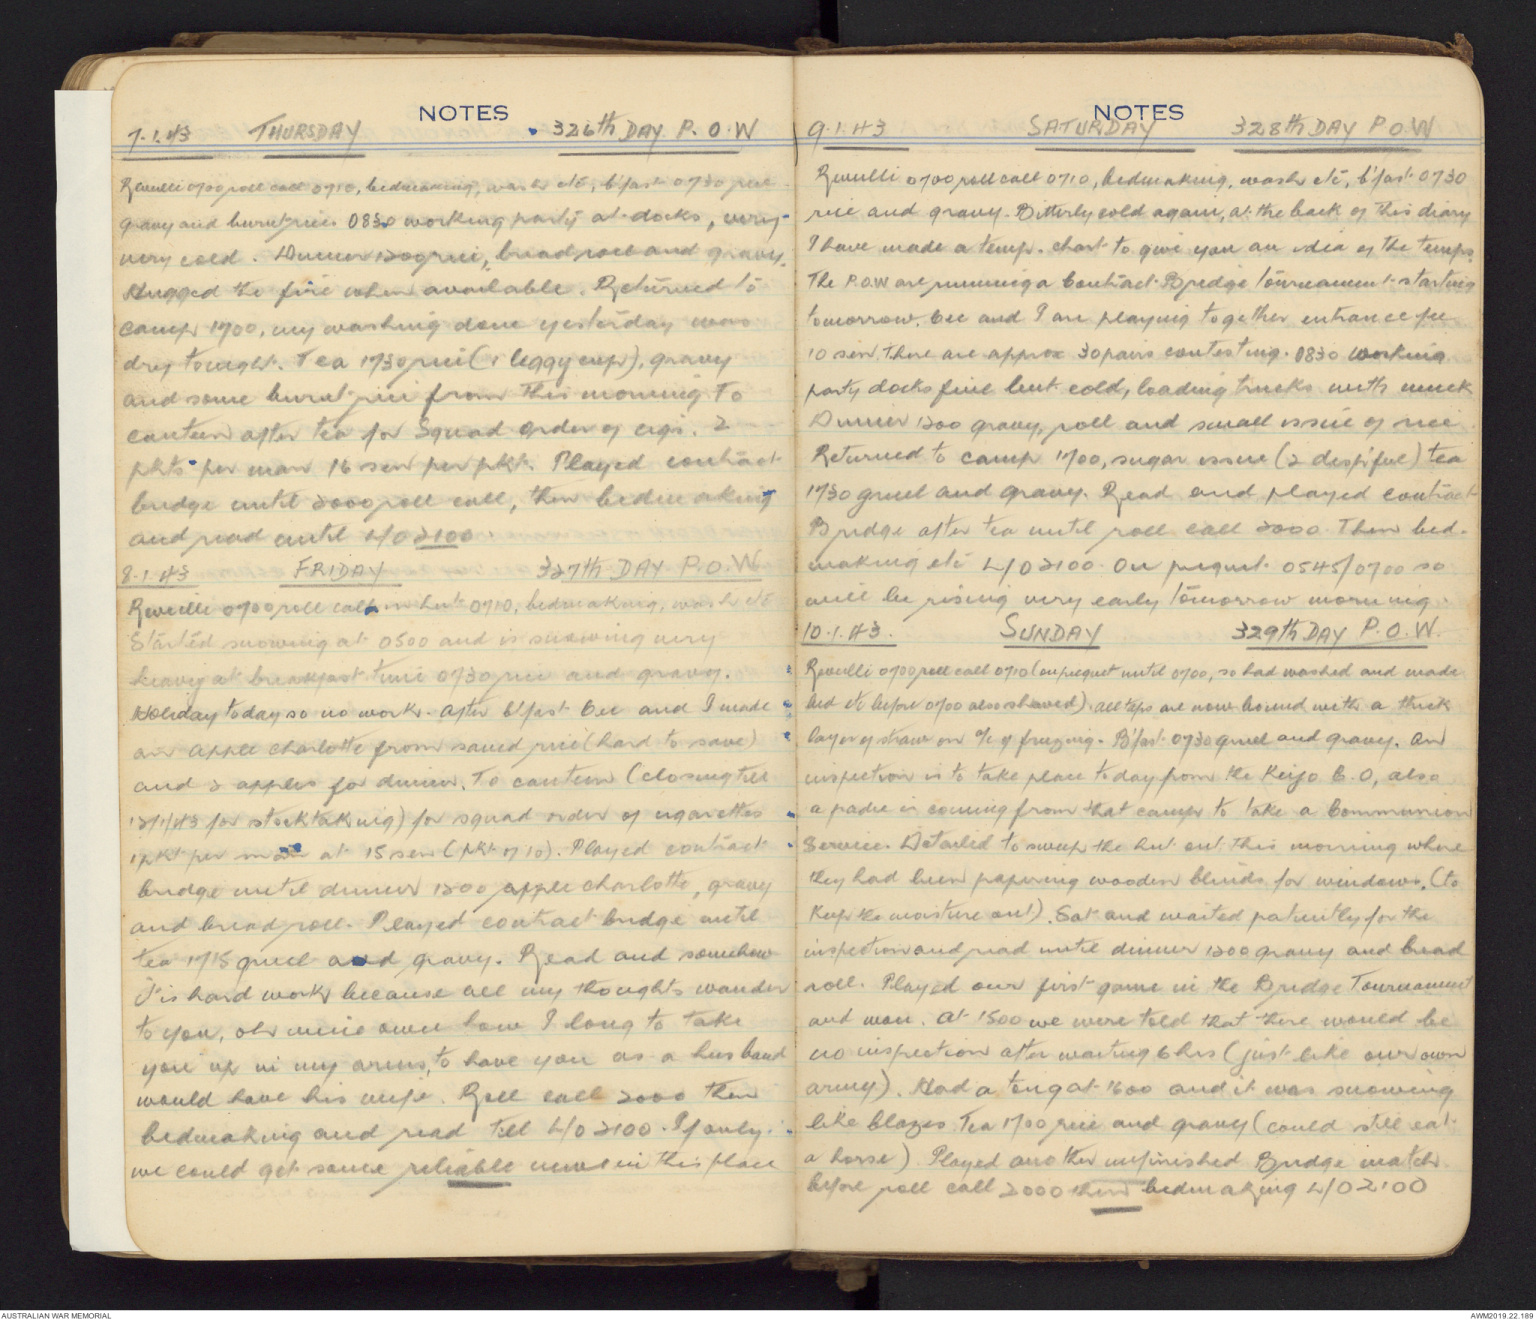 NOTES
7.1.43 THURSDAY 326th DAY P.O.W
Reveille 0700 roll call 0710, bedmaking, wash etc, b'fast 0730 rice
gravy and burnt rice. 0830 working party at docks, very
very cold. Dinner 1200 rice, bread roll and gravy.
Hugged the fire when available. Returned to
camp 1700, my washing done yesterday was
dry tonight. Tea 1730 rice (1 leggy cup), gravy
and some burnt rice from this morning To
canteen after tea for Squad order of cigs. 2
pkts per man 16 sen per pkt. Played contract
bridge until 2000 roll call, then bedmaking
and read until L/O 2100.
8.1.43 FRIDAY 327th DAY P.O.W.
Reveille 0700 roll call in hut 0710, bedmaking, wash etc
Started snowing at 0500 and is snowing very
heavy at breakfast time 0730 rice and gravy.
Holiday today so no work. After b'fast Cec and I made
an apple charlotte from saved rice (hard to save)
and 2 apples for dinner. To canteen (closing till
12/1/43 for stocktaking) for squad order of cigarettes
1 pkt per man at 15 sen (pkt of 10). Played contract
bridge until dinner 1200 apple charlotte, gravy
and bread roll. Played contract bridge until
tea 1715 gruel and gravy. Read and somehow
it is hard work because all my thoughts wander
to you, oh mine own how I long to take
you up in my arms, to have you as a husband
would have his wife. Roll call 2000 then
bedmaking and read till L/O 2100. If only
we could get some reliable news in this place
NOTES
9.1.43 SATURDAY 328th DAY P O W
Reveille 0700 roll call 0710, bedmaking, wash etc, b'fast 0730
rice and gravy. Bitterly cold again, at the back of this diary
I have made a temp. chart to give you an idea of the temps.
The P.O.W are running a Contract Bridge Tournament starting
tomorrow. Cec and I are playing together entrance fee
10 sen. There are approx 30 pairs contesting. 0830 working
party docks fine but cold, loading trucks with muck
Dinner 1200 gravy, roll and small issue of rice
Returned to camp 1700, sugar issue (2 desp'ful) tea
1730 gruel and gravy. Read and played contract
Bridge after tea until roll call 2000. Then bed-
making etc L/O 2100. On picquet 0545/0700 so
will be rising very early tomorrow morning.
10.1.43. SUNDAY 329th DAY P.O.W.
Reveille 0700 roll call 0710 (on picquet until 0700, so had washed and made
bed etc before 0700 also shaved). All taps are now bound with a thick
layer of straw on a/c of freezing. B'fast 0730 gruel and gravy. An
inspection is to take place today from the Keijo C.O, also
a padre is coming from that camp to take a Communion
Service. Detailed to sweep the hut out this morning where
they had been papering wooden blinds for windows. (to
Keep the moisture out). Sat and waited patiently for the
inspection and read until dinner 1200 gravy and bread
roll. Played our first game in the Bridge Tournament
and won. At 1500 we were told that there would be
no inspection after waiting 6 hrs (just like our own
army). Had a tong at 1600 and it was snowing
like blazes. Tea 1700 rice and gravy (could still eat
a horse). Played another unfinished Bridge match
before roll call 2000 then bedmaking L/O 2100
AUSTRALIAN WAR MEMORIAL
AWM2019.22.189